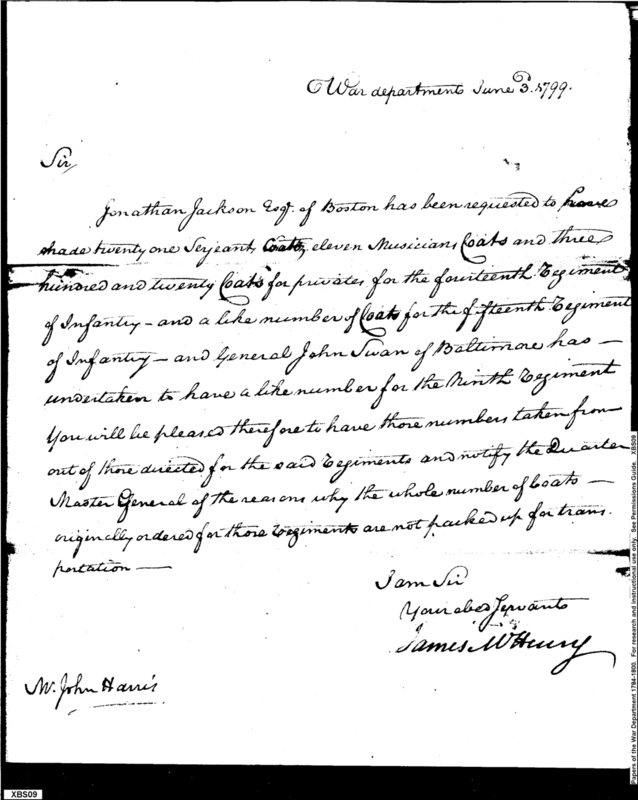 War department June 3d. 1799.
Sir,
Jonathan Jackson Esqr. of Boston has been requested to have
made twenty one Serjeants Coats, eleven Musicians Coats and three
hundred and twenty Coats for privates for the fourteenth Regiment
of Infantry – and a like number of Coats for the fifteenth Regiment
of Infantry – and General John Swan of Baltimore has –
undertaken to have a like number for the Ninth Regiment
You will be pleased therefore to have those numbers taken from
out of those directed for the said Regiments and notify the Quarter
Master General of the reasons why the whole number of Coats –
originally ordered for those Regiments are not packed up for trans
portation —
I am Sir
Your obed Servant
James McHenry
Mr. John Harris
XBS09
Papers of the War Department 1784-1800. For research and instructional use only. See Permissions Guide. XBS09